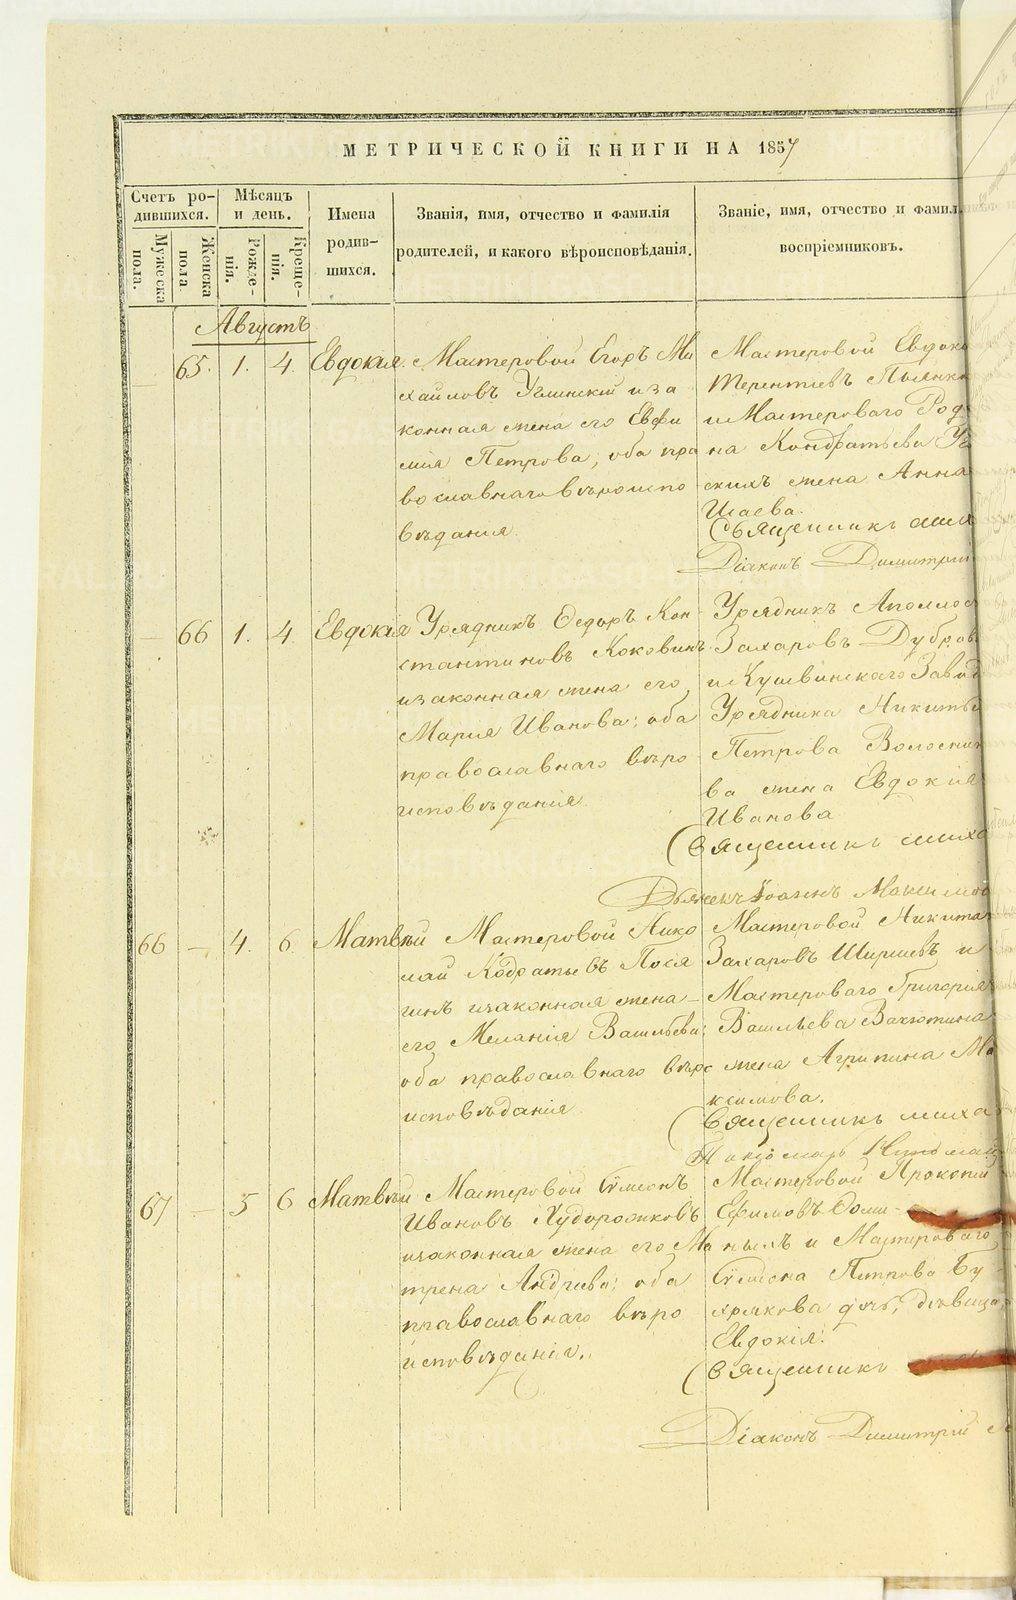 МЕТРИЧЕСКОЙ КНИГИ НА 1857
Счетъ ро-
дившихся.
Мужеска
пола.
Женска
пола
Мѣсяцъ
и день.
Рожде-
нія.
Креще-
нія.
Имена
родив-
шихся.
Званія, имя, отчество и фамилія
родителей, и какого вѣроисповѣданія.
Званіе, имя, отчество и фамил
воспріемниковъ.
Августъ
65. 1. 4. Евдокія.
Мастеровой Егоръ Ми
хайловъ Углинскій и за
конная жена его Евфи
мія Петрова, оба пра
вославнаго вѣроиспо
вѣданія.
Мастеровой Евдоко
Терентіевъ Пьянко
и Мастероваго Род
на Кондратьева Уг
скихъ жена Анна
Исаева.
Священникъ мих
Діаконъ Димитрій
66 1. 4. Евдокія
Урядникъ Ѳедоръ Кон
стантиновъ Коковинъ
и законная жена его
Марія Ивановa; оба
православнаго вѣро
исповѣданія
Урядникъ Аполлос
Захаровъ Дубров
и Кушвинскаго Завод
Урядника Никиты
Петрова Волосни
ва жена Евдокія
Иванова
Священникъ миха
Дьяконъ Іоаннъ Максимов
66 — 4. 6 Матвѣй
Мастеровой Нико
лай Кодратьевъ Пося
гинъ и законная жена
его Меланія Васильева;
оба православнаго вѣро
исповѣданія
Мастеровой Никита
Захаровъ Ширшевъ и
Мастероваго Григорія
Васильева Вахотина
жена Агрипина Ма
ксимова.
Священникъ миха
Пономарь
67 — 5 6 Матвѣй
Мастеровой Сѵмеонъ
Ивановъ Худорожковъ
и законная жена его Ма
трена Андреева; оба
православнаго вѣро
исповѣданія.
Мастеровой Прокопій
Ефимовъ Ѳоми-
ныхъ и Мастероваго
Сѵмеона Петрова Бу-
хрякова дочь, дѣвица
Евдокія.
Священникъ
Діаконъ Димитрій